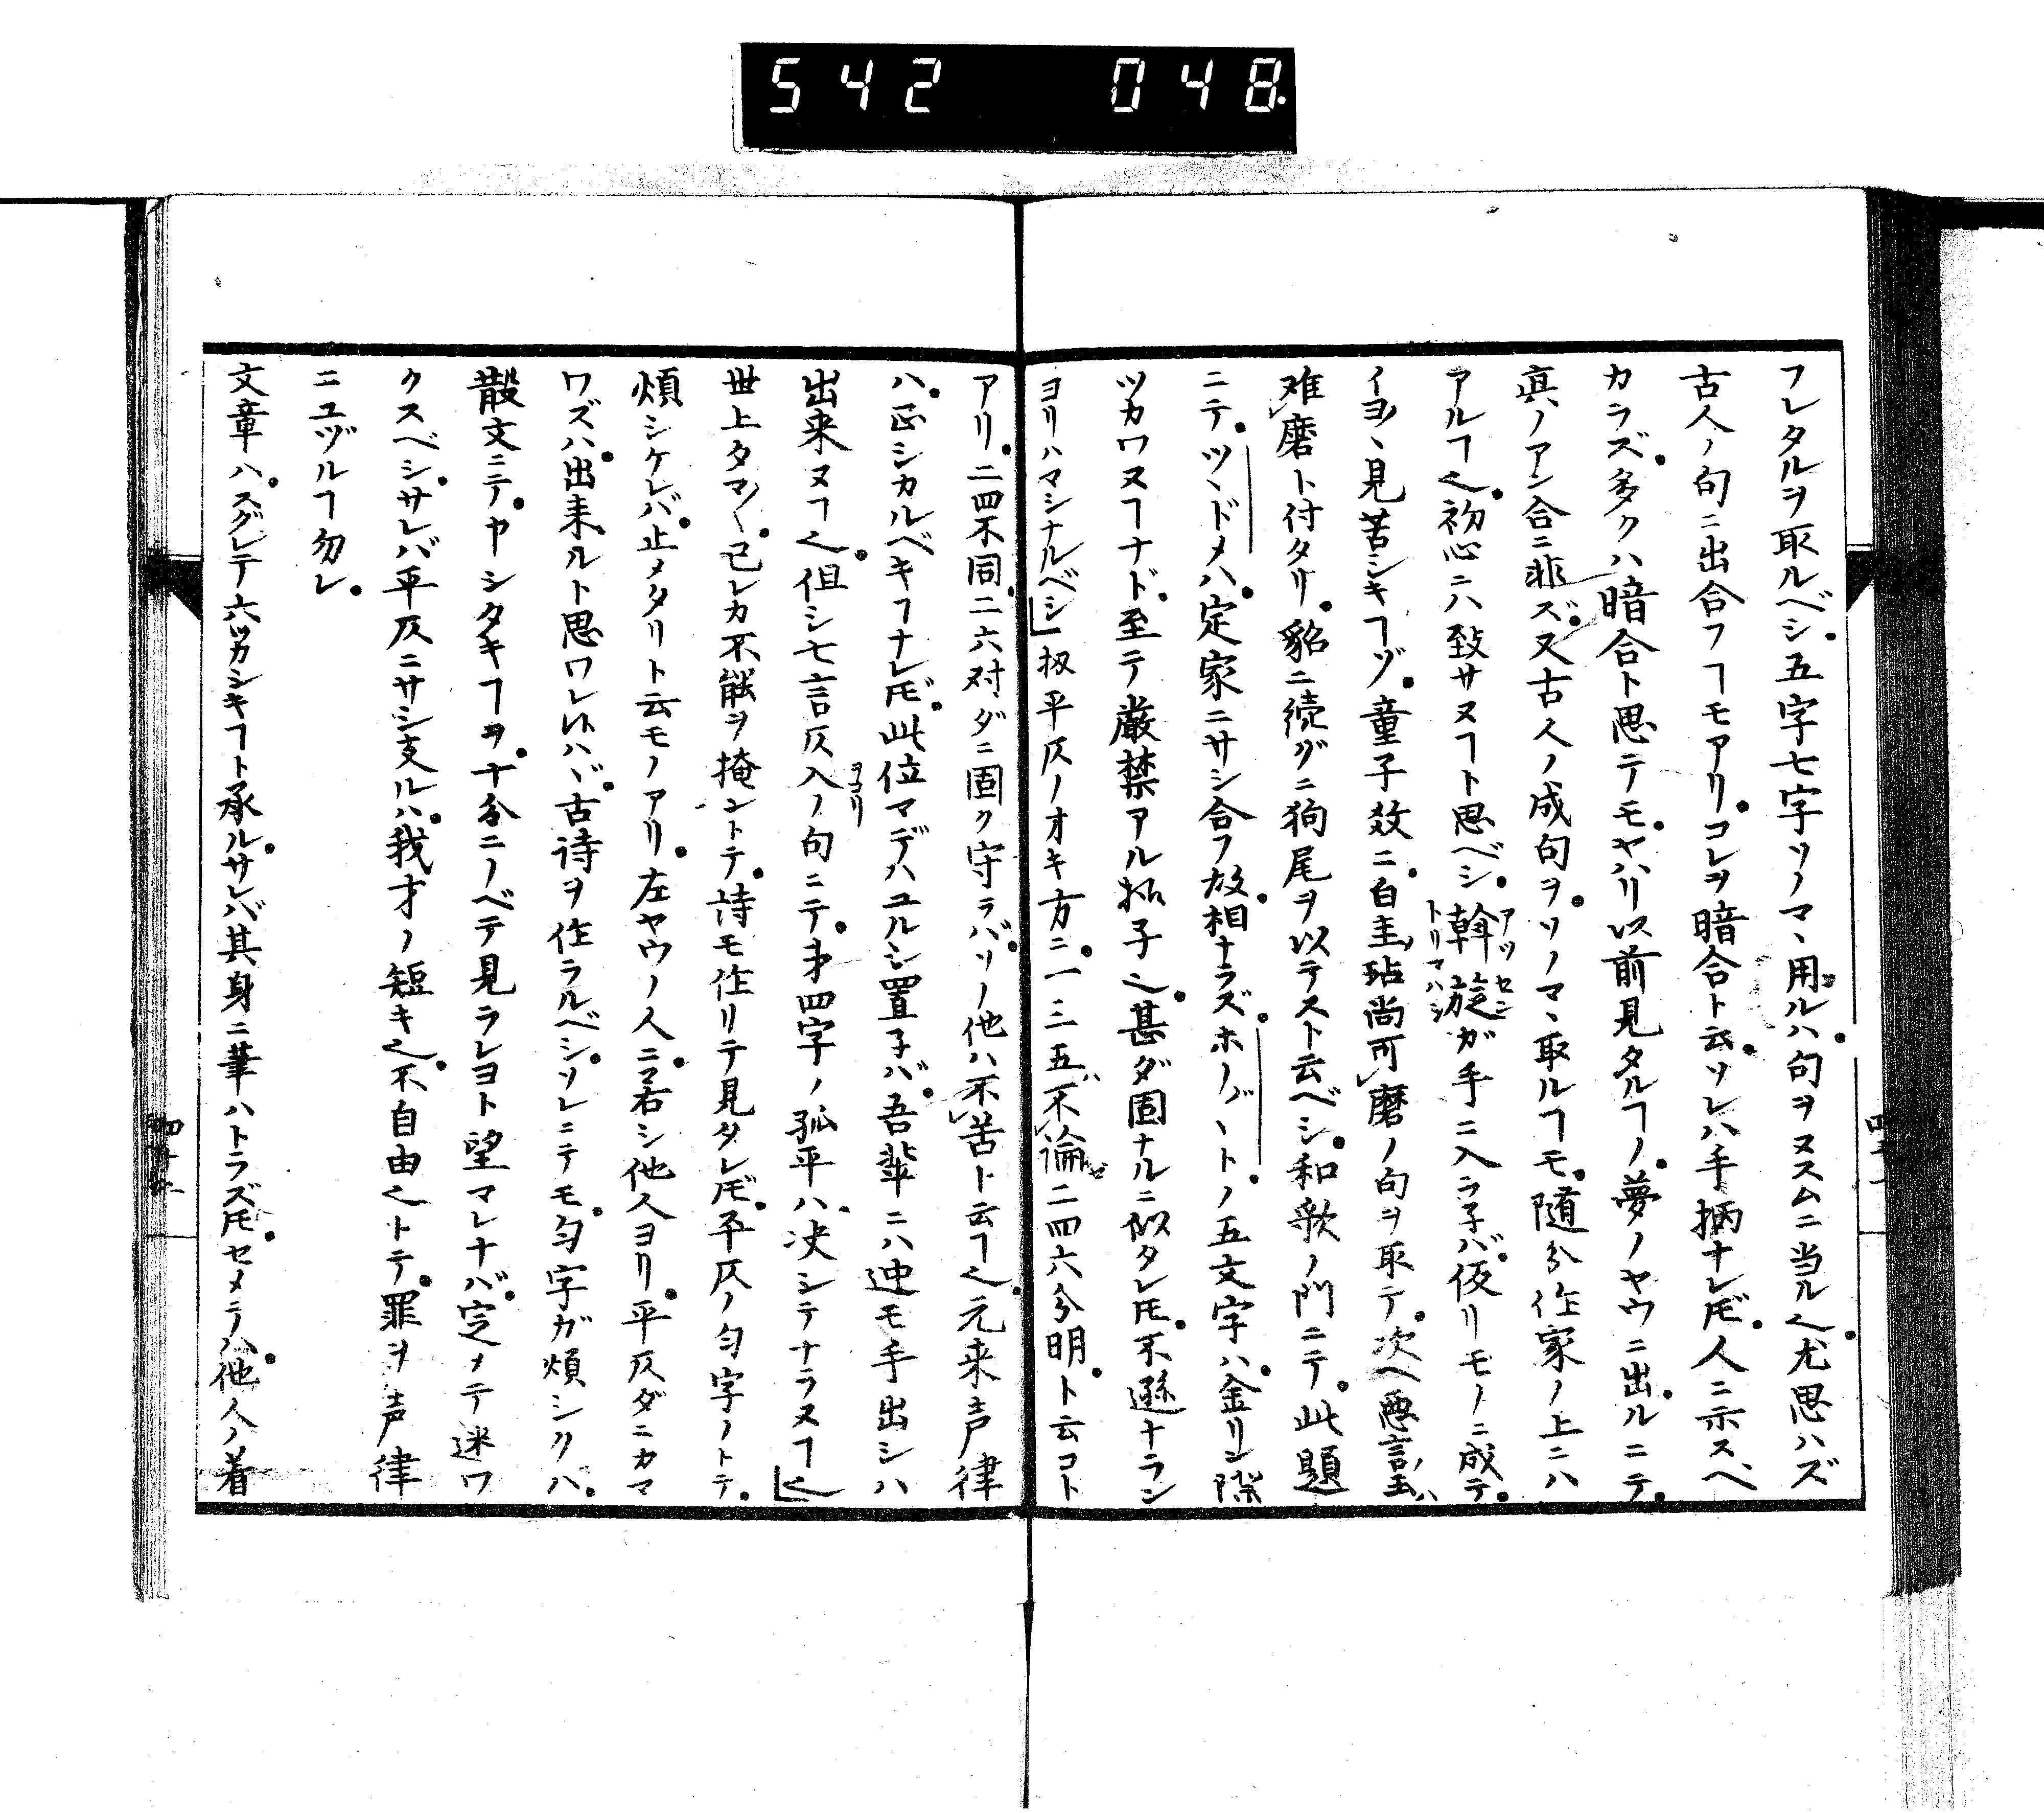 542 048
フレタルヲ取ルベシ。五字七字ソノマヽ用ルハ。句ヲヌスムニ当ル𪜈。尤思ハズ
古人ノ句ニ出合フヿモアリ。コレヲ暗合ト云。ソレハ手柄ナレ𪜈。人ニ示スベ
カラズ。多クハ暗合ト思テモ。ヤハリ以前見タルヿノ。夢ノヤウニ出ルニテ。
真ノアン合ニ非ズ。又古人ノ成句ヲ。ソノマヽ取ルヿモ。随分作家ノ上ニハ
アルヿ也。初心ニハ致サヌヿト思ベシ。斡旋ガ手ニ入ラ子バ。仮リモノニ成テ。
アツセン
トリマハシ
イヨヽ見苦シキヿゾ。童子教ニ。白圭玷尚可磨ノ句ヲ取テ。次ヘ悪言玉ハ
难磨ト付タリ。貂ニ続グニ狗尾ヲ以テスト云ベシ。和歌ノ門ニテ。此題
ニテ。ツヽドメハ。定家ニサシ合フ故。相ナラズ。ホノ〴〵ト。ノ五文字ハ。金リン際
ツカワヌヿナド。至テ厳禁アル拍子也。甚ダ固ナルニ似タレ𪜈。不遜ナラン
ヨリハマシナルベシ」扨平仄ノオキ方ニ。一三五不論。二四六分明。ト云コト
アリ。二四不同。二六対。ダニ固ク守ラバ。ソノ他ハ不苦ト云ヿ也。元来声律
ハ。正シカルベキヿナレ𪜈。此位マデハユルシ置子バ。吾輩ニハ迚モ手出シハ
出来ヌヿ也。但シ七言仄入ノ句ニテ。㐧四字ノ孤平ハ。决シテナラヌヿ也」
ヲコリ
世上タマ〳〵。己レカ不能ヲ掩ントテ。詩モ作リテ見タレ𪜈。平仄ノ匀字ノトテ。
煩シケレバ。止メタリト云モノアリ。左ヤウノ人ニ。若シ他人ヨリ。平仄ダニカマ
ワズハ。出来ルト思ワレ候ハヾ。古詩ヲ作ラルベシ。ソレニテモ。匀字ガ煩シクハ。
散文ニテ。申シタキヿヲ。十分ニノベテ見ラレヨト望マレナバ。定メテ迷ワ
クスベシ。サレバ平仄ニサシ支ルハ。我才ノ短キ也。不自由也トテ。罪ヲ声律
ニユヅルヿ勿レ。
文章ハ。スグレテ六ツカシキヿト承ル。サレバ其身ニ筆ハトラズ𪜈。セメテハ。他人ノ着